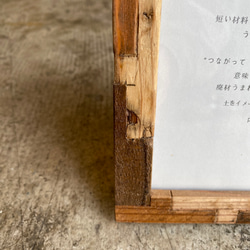 短い材料
う
"つながって
意味
廃材うまれ
七色イメー